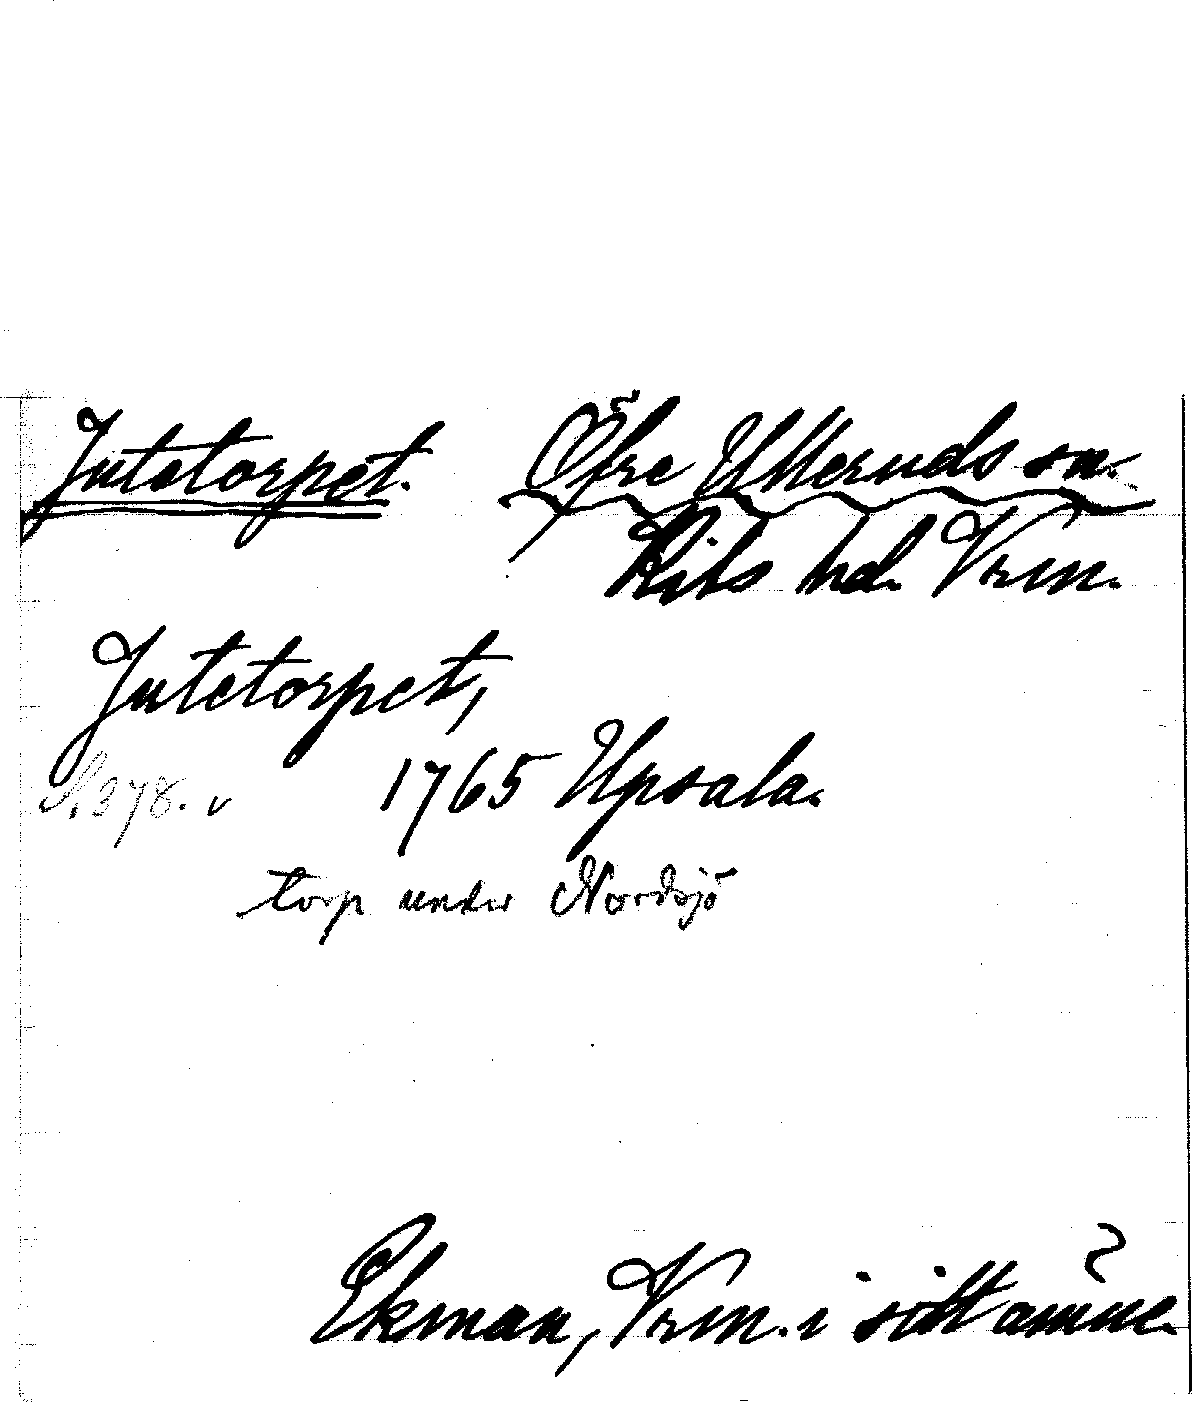 Jutetorpet. Öfre Ulleruds sn.
Kils hd. Vrm.
Jutetorpet,
S. 378. v 1765 Upsala.
torp under Nordsjö
Ekman, Vrm. i sitt ämne.